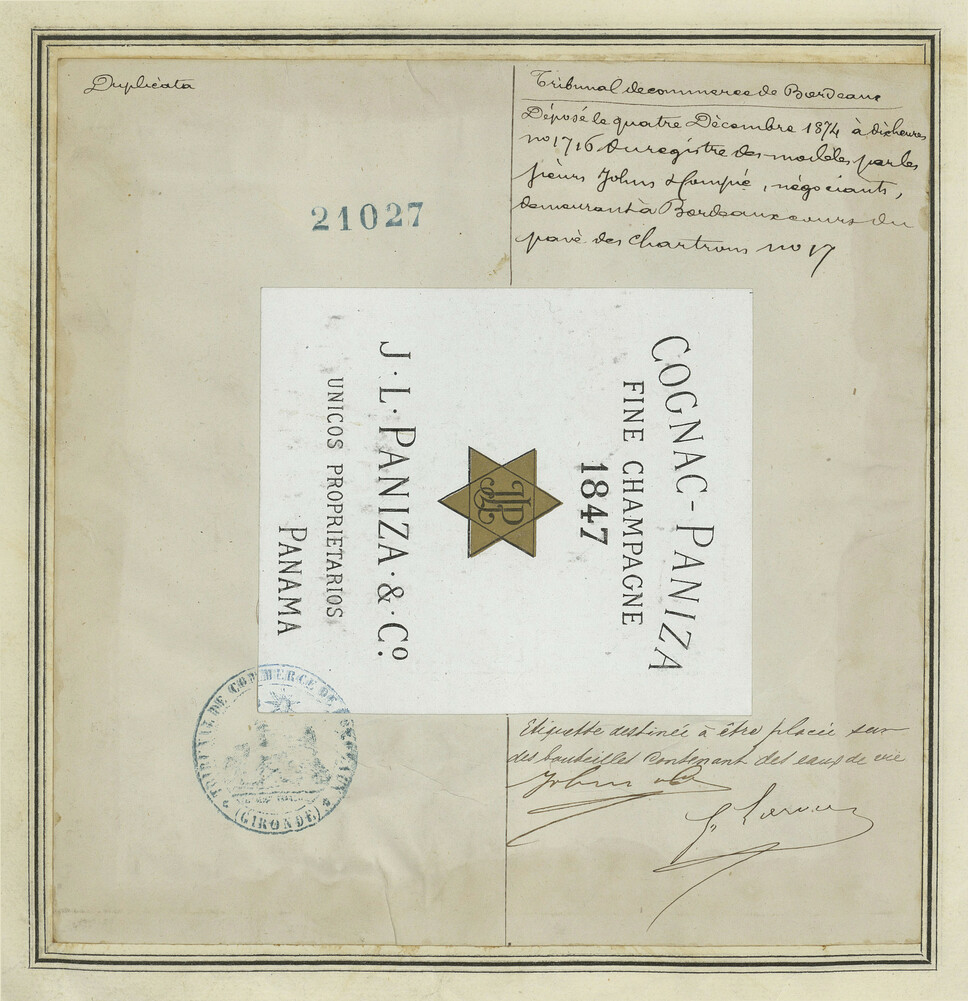 Duplicata
Tribunal de commerce de Bordeaux
Déposé le quatre Décembre 1874 à dix heures
no 1716 du registre des modèles par les
sieurs Johns & Compie, négociants,
demeurant à Bordeaux cours du
pavé des chartrons no 17
21027
COGNAC-PANIZA
FINE CHAMPAGNE
1847
JLP
J.L.PANIZA.&.Co.
UNICOS PROPRIETARIOS
PANAMA
TRIBUNAL DE COMMERCE DE BORDEAUX
(GIRONDE)
Etiquette destinée à être placée sur
des bouteilles contenant des eaux de vie